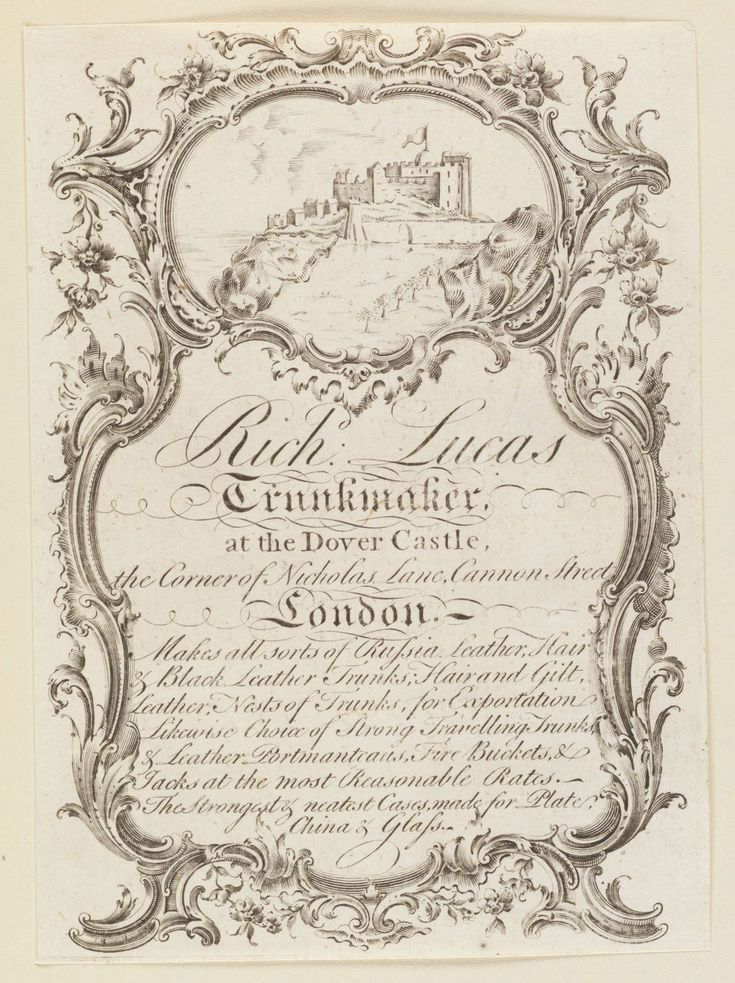 Richd. Lucas
Trunkmaker,
at the Dover Castle,
the Corner of Nicholas Lane, Cannon Street
London.
Makes all sorts of Russia Leather, Hair
& Black Leather Trunks, Hair and Gilt,
Leather, Nests of Trunks, for Exportation
Likewise Choice of Strong Travelling Trunks,
& Leather Portmanteaus, Fire Buckets, &
Jacks at the most Reasonable Rates.
The Strongest & neatest Cases, made for Plate,
China & Glass.